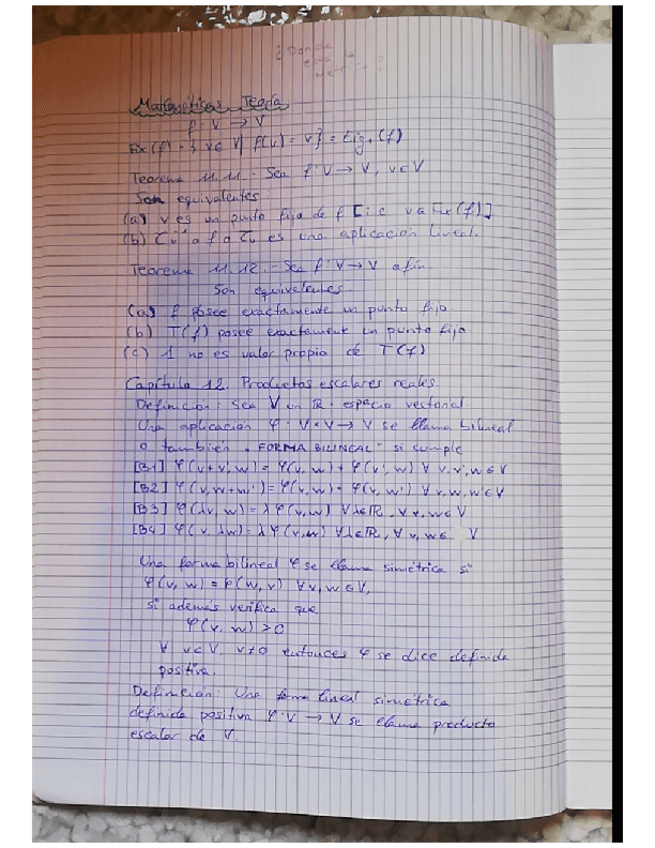 ¿Donde
está la
Matemáticas Teoría
f: V → V
Fix(f) = { v ∈ V | f(v) = v } = Eig₁(f)
Teorema 11.11.- Sea f: V → V, v ∈ V
Son equivalentes
(a) v es un punto fijo de f [i.e. v ∈ Fix(f)]
(b) τᵥ⁻¹ o f o τᵥ es una aplicación lineal.
Teorema 11.12.- Sea f: V → V afín.
Son equivalentes
(a) f posee exactamente un punto fijo.
(b) T(f) posee exactamente un punto fijo
(c) 1 no es valor propio de T(f)
Capítulo 12. Productos escalares reales.
Definición: Sea V un ℝ-espacio vectorial
Una aplicación φ: V×V → V se llama bilineal
o también "FORMA BILINEAL" si cumple
[B1] φ(v+v', w) = φ(v, w) + φ(v', w) ∀ v, v', w ∈ V
[B2] φ(v, w+w') = φ(v, w) + φ(v, w') ∀ v, w, w' ∈ V
[B3] φ(λv, w) = λ φ(v, w) ∀ λ∈ℝ, ∀ v, w ∈ V
[B4] φ(v, λw) = λ φ(v, w) ∀ λ∈ℝ, ∀ v, w ∈ V
Una forma bilineal φ se llama simétrica si
φ(v, w) = φ(w, v) ∀ v, w ∈ V,
si además verifica que
φ(v, w) > 0
∀ v ∈ V, v ≠ 0 entonces φ se dice definida
positiva.
Definición: Una forma lineal simétrica
definida positiva φ: V → V se llama producto
escalar de V.